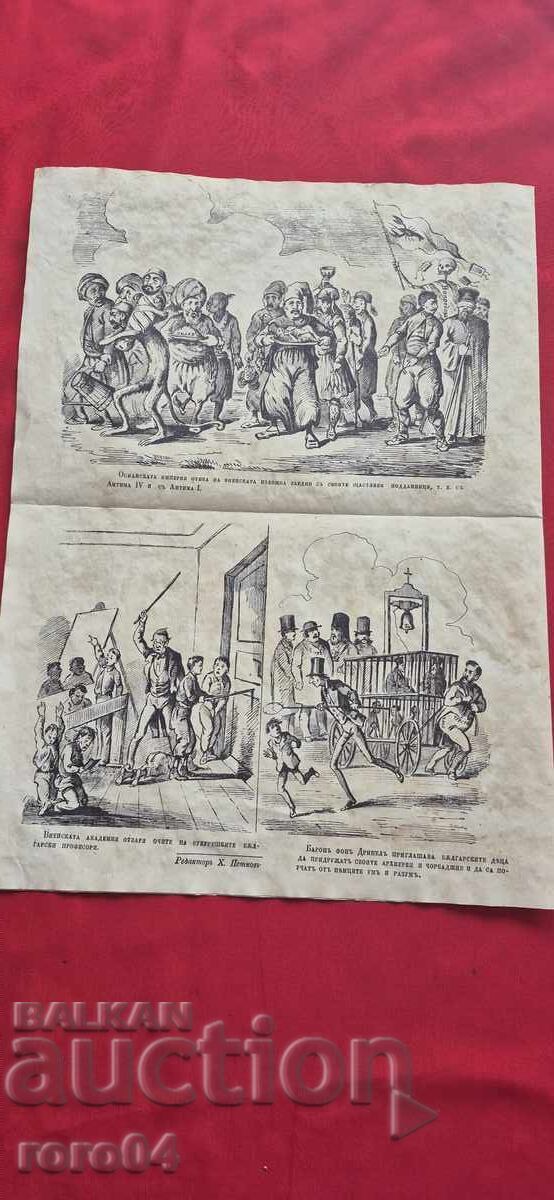 Османската империя отива на виенската изложба заедно съ своите щастливи подданници, т. е. съ
Антима IV и съ Антима I.
Виенската академия отваря очите на букурещките бъл-
гарски професори.
Редакторъ Х. Петковъ
Баронъ фонъ Дривелъ приглашава българските дѣца
да придружатъ своите архиереи и чорбаджии и да са по-
учатъ отъ немците умъ и разумъ.
BALKAN
auction
roro04